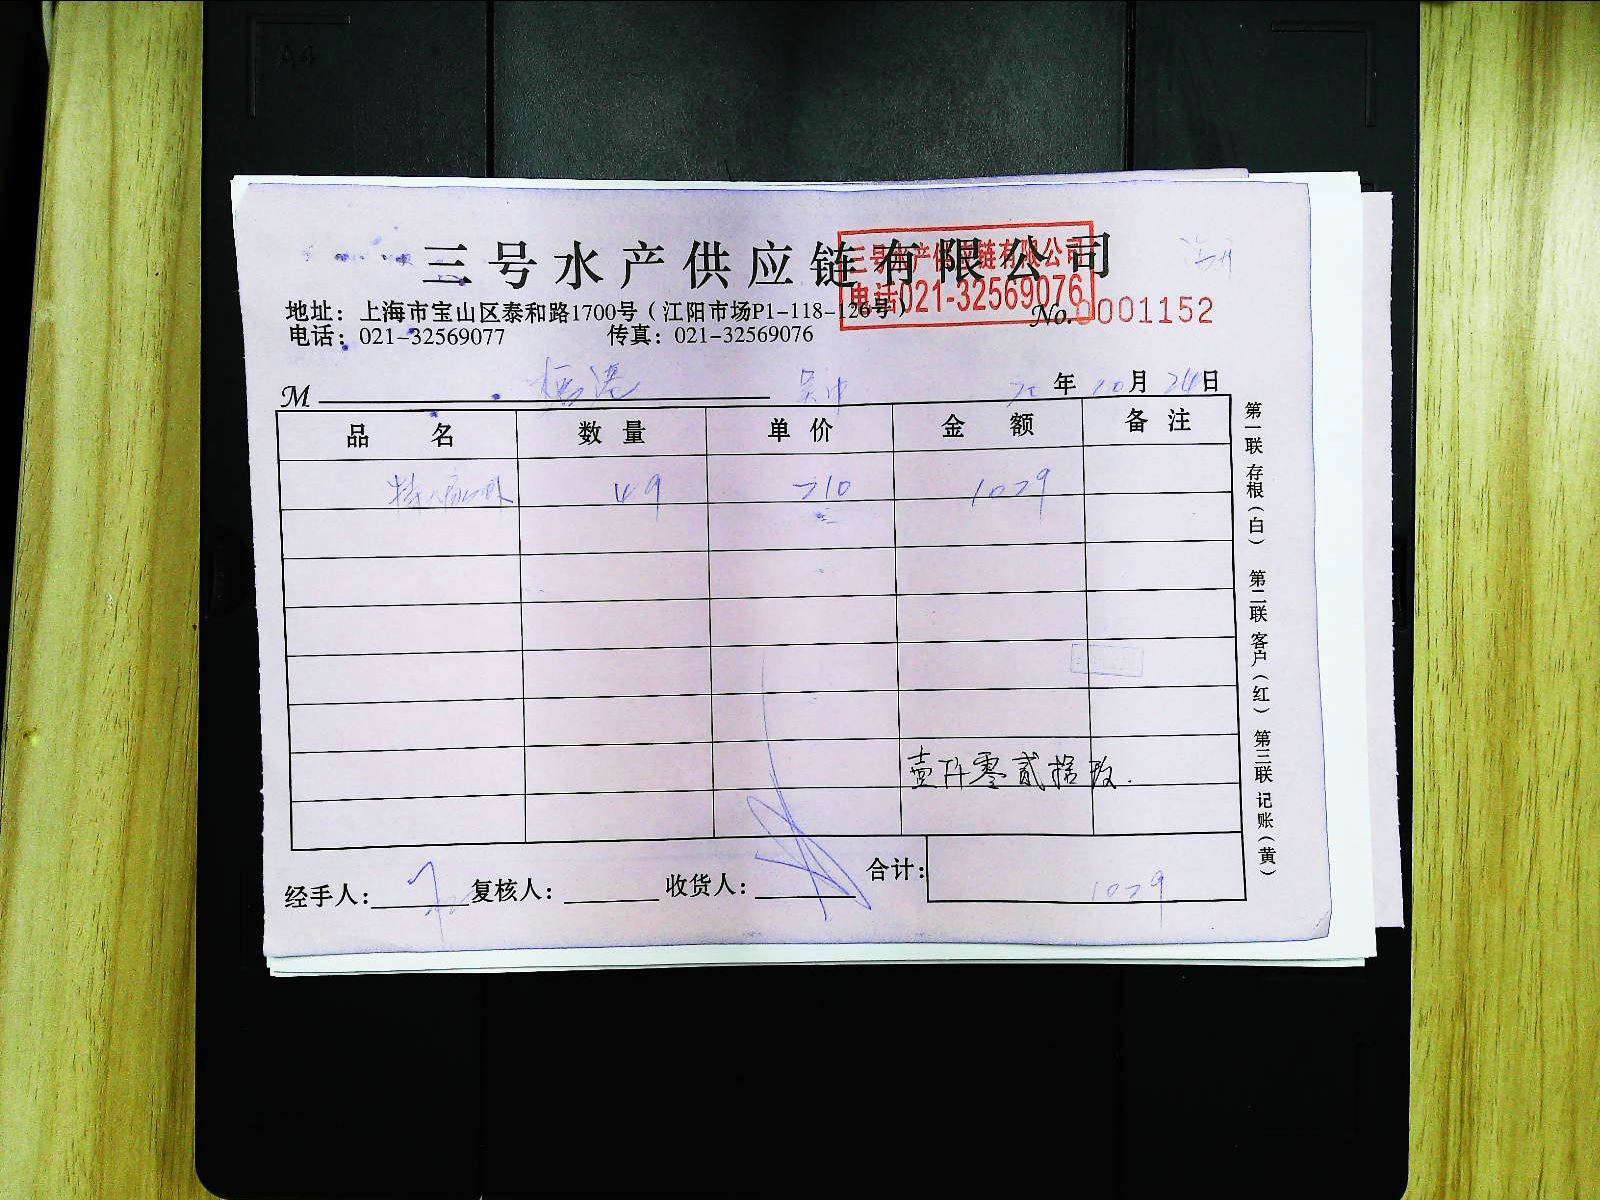 三号水产供应链有限公司
三号水产供应链有限公司
电话021-32569076
地址：上海市宝山区泰和路1700号（江阳市场P1-118-126号）
No.0001152
电话：021-32569077 传真：021-32569076
M 年 10月 24日
品名 数量 单价 金额 备注
49 210 1029
壹仟零贰拾玖.
合计： 1029
经手人： 复核人： 收货人：
第一联 存根（白） 第二联 客户（红） 第三联 记账（黄）